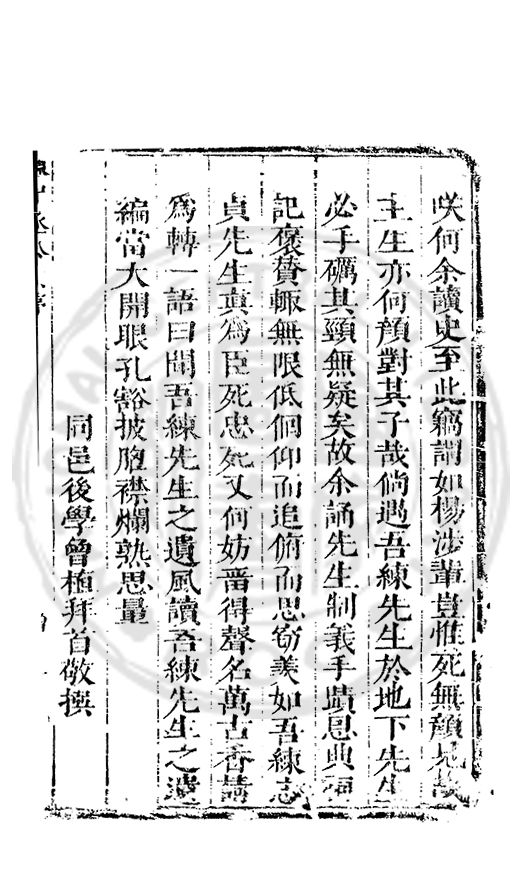 咲何余讀史至此竊謂如楊涉輩豈惟死無顏見故
主生亦何顏對其子哉倘遇吾練先生於地下先生
必手礪其頸無疑矣故余誦先生制義手蹟恩典
記褒賛輙無限低徊仰而追俯而思竊羨如吾練忠
貞先生真為臣死忠死又何妨啚得聲名萬古香請
為轉一語曰聞吾練先生之遺風讀吾練先生之遺
編當大開眼孔豁披胸襟爛熟思量
同邑後學曾植拜首敬撰